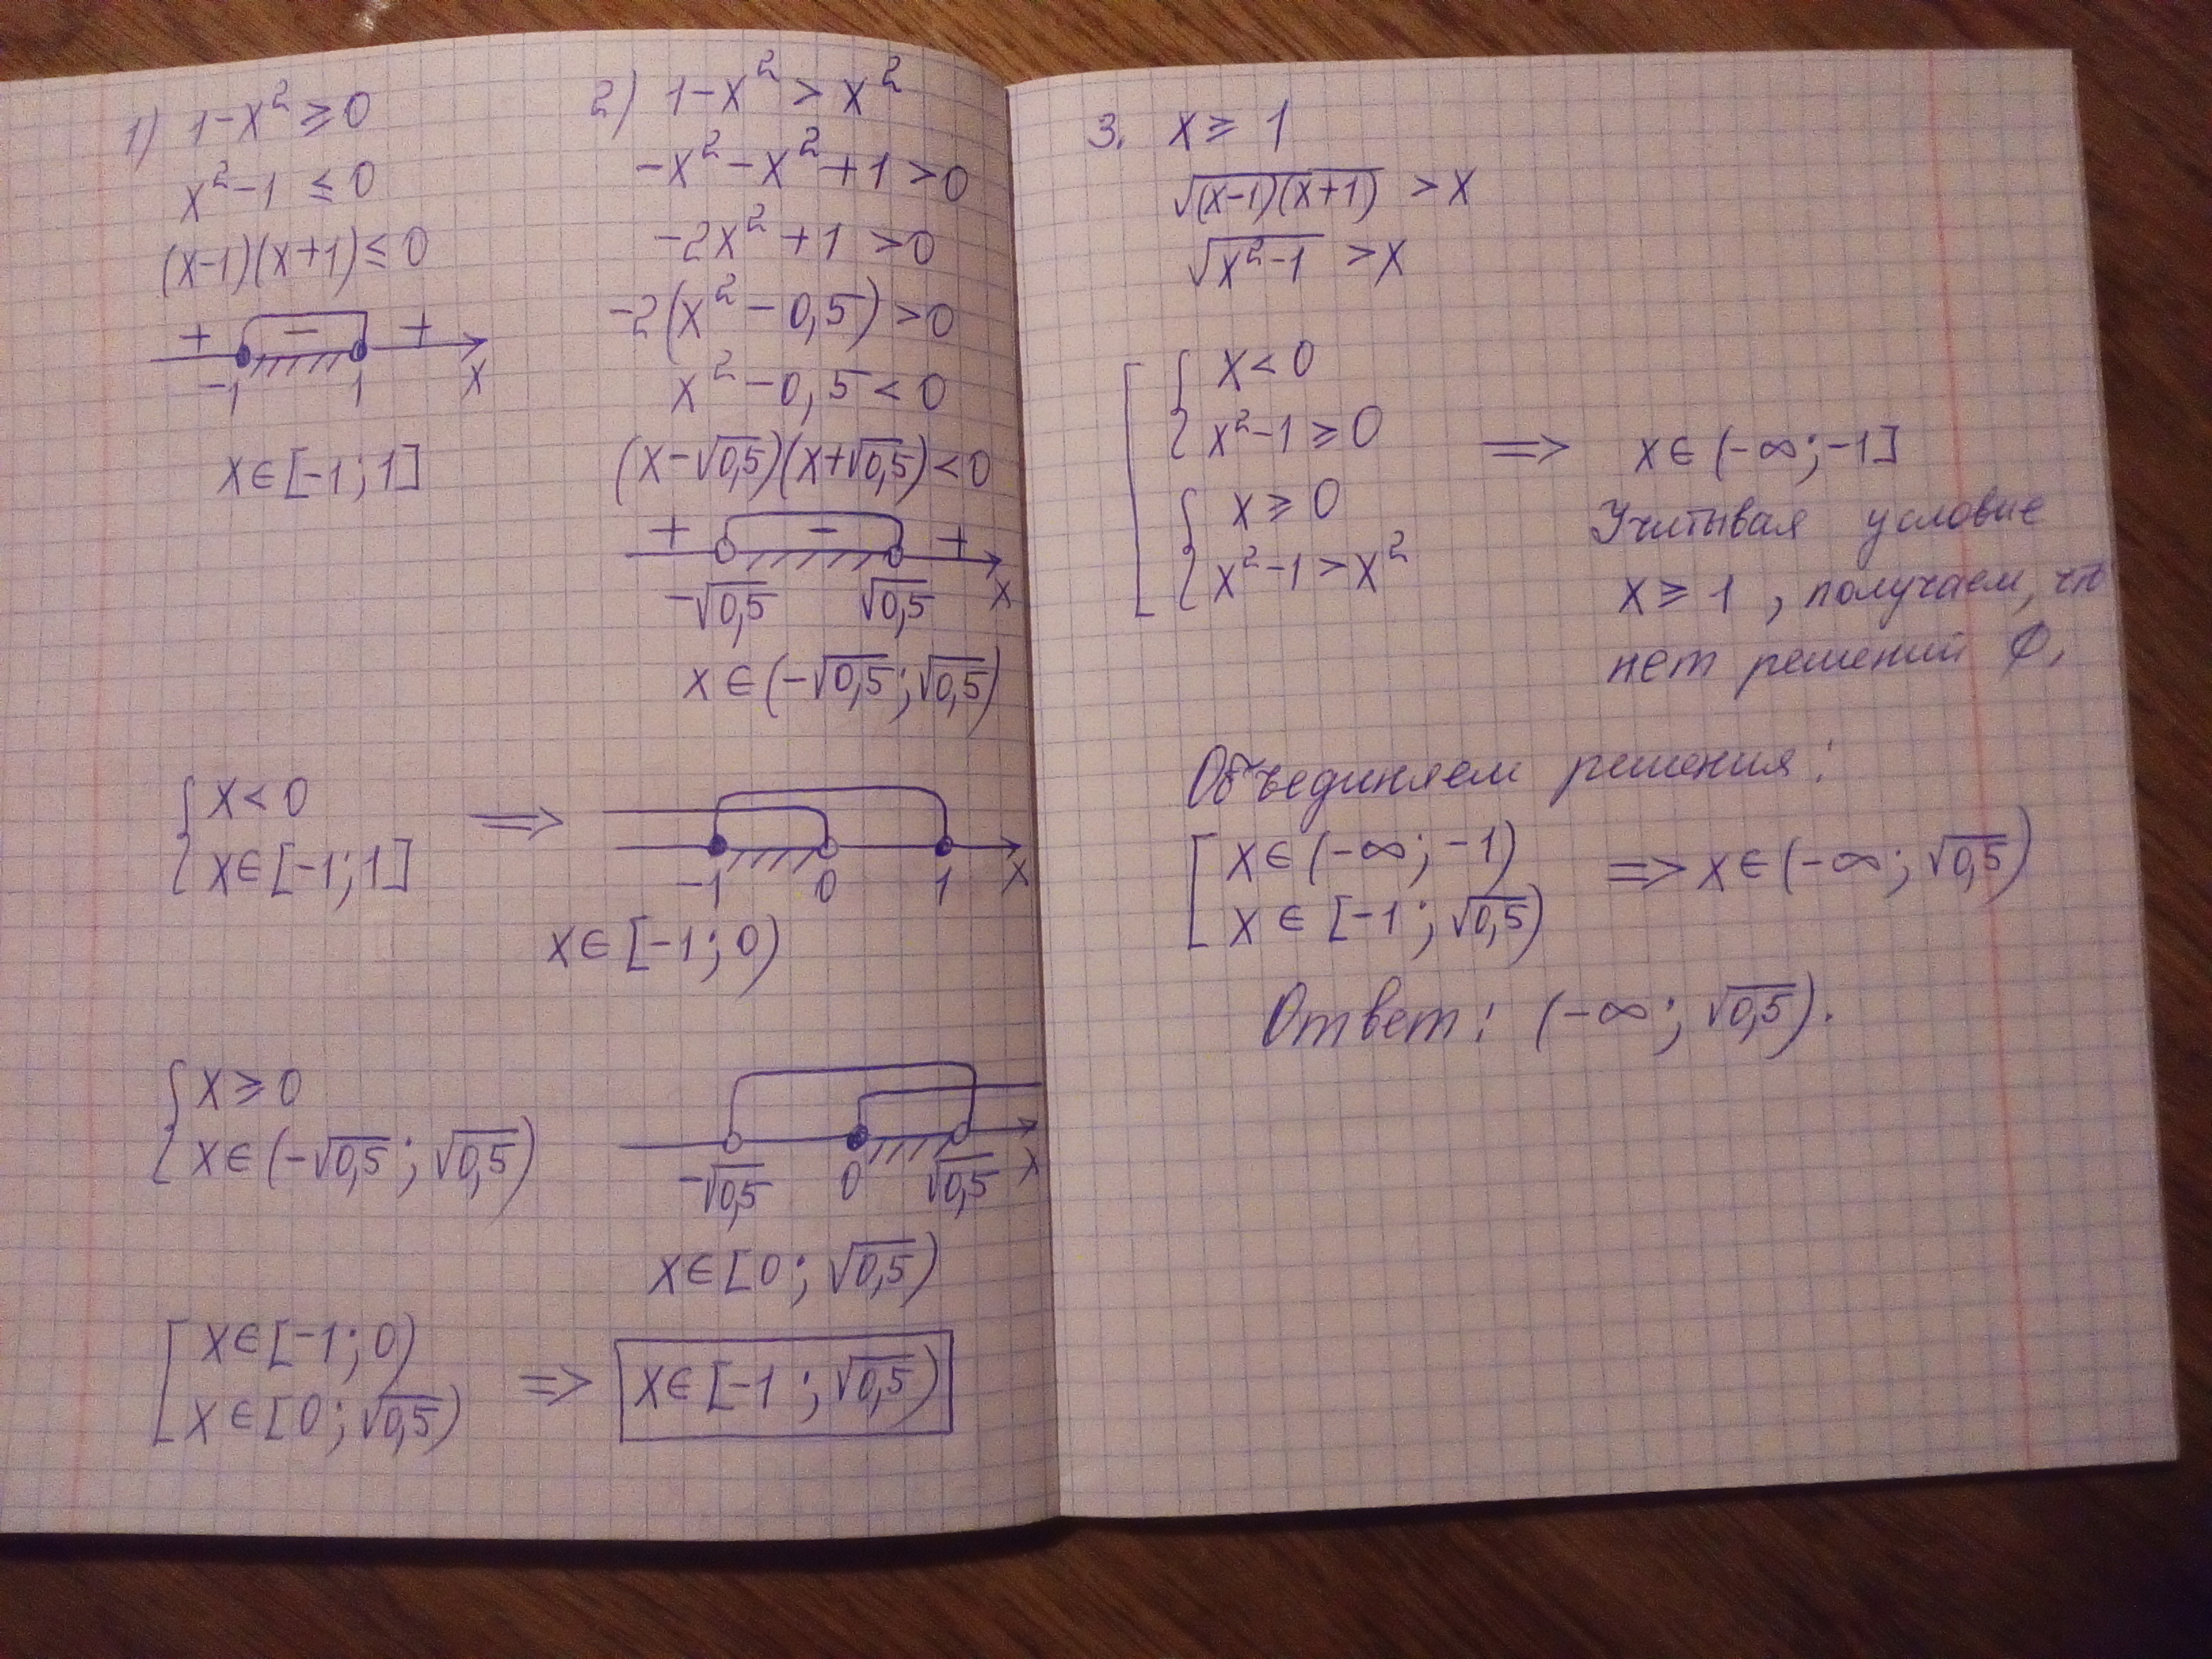 1) 1-x² ⩾ 0
x²-1 ≤ 0
(x-1)(x+1) ≤ 0
+ - +
-1 1 x
x∈[-1;1]
2) 1-x² > x²
-x²-x²+1 > 0
-2x²+1 > 0
-2(x²-0,5) > 0
x²-0,5 < 0
(x-√0,5)(x+√0,5) < 0
+ - +
-√0,5 √0,5 x
x∈(-√0,5;√0,5)
{ x < 0
{ x∈[-1;1]
⇒
-1 0 1 x
x∈[-1;0)
{ x ⩾ 0
{ x∈(-√0,5;√0,5)
-√0,5 0 √0,5 x
x∈[0;√0,5)
[ x∈[-1;0)
[ x∈[0;√0,5)
⇒ x∈[-1;√0,5)
3. x ⩾ 1
√(x-1)(x+1) > x
√x²-1 > x
[ { x < 0
{ x²-1 ⩾ 0
{ x ⩾ 0
{ x²-1 > x²
⇒ x∈(-∞;-1]
Учитывая условие
x ⩾ 1, получаем, что
нет решений ∅,
Объединяем решения:
[ x∈(-∞;-1)
[ x∈[-1;√0,5)
⇒ x∈(-∞;√0,5)
Ответ: (-∞;√0,5).